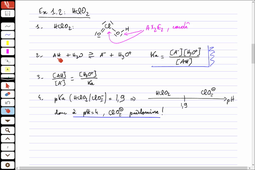 Ex 1.2: HClO₂
1. HClO₂: O Cl O H AX₂E₂, coudé
2. AH + H₂O ⇌ A⁻ + H₃O⁺ Ka = [A⁻][H₃O⁺] / [AH]
3. [AH] / [A⁻] = [H₃O⁺] / Ka
4. pKa (HClO₂/ClO₂⁻) = 1,9 ⇒ HClO₂ ClO₂⁻ 1,9 pH
donc à pH=4, ClO₂⁻ prédomine !